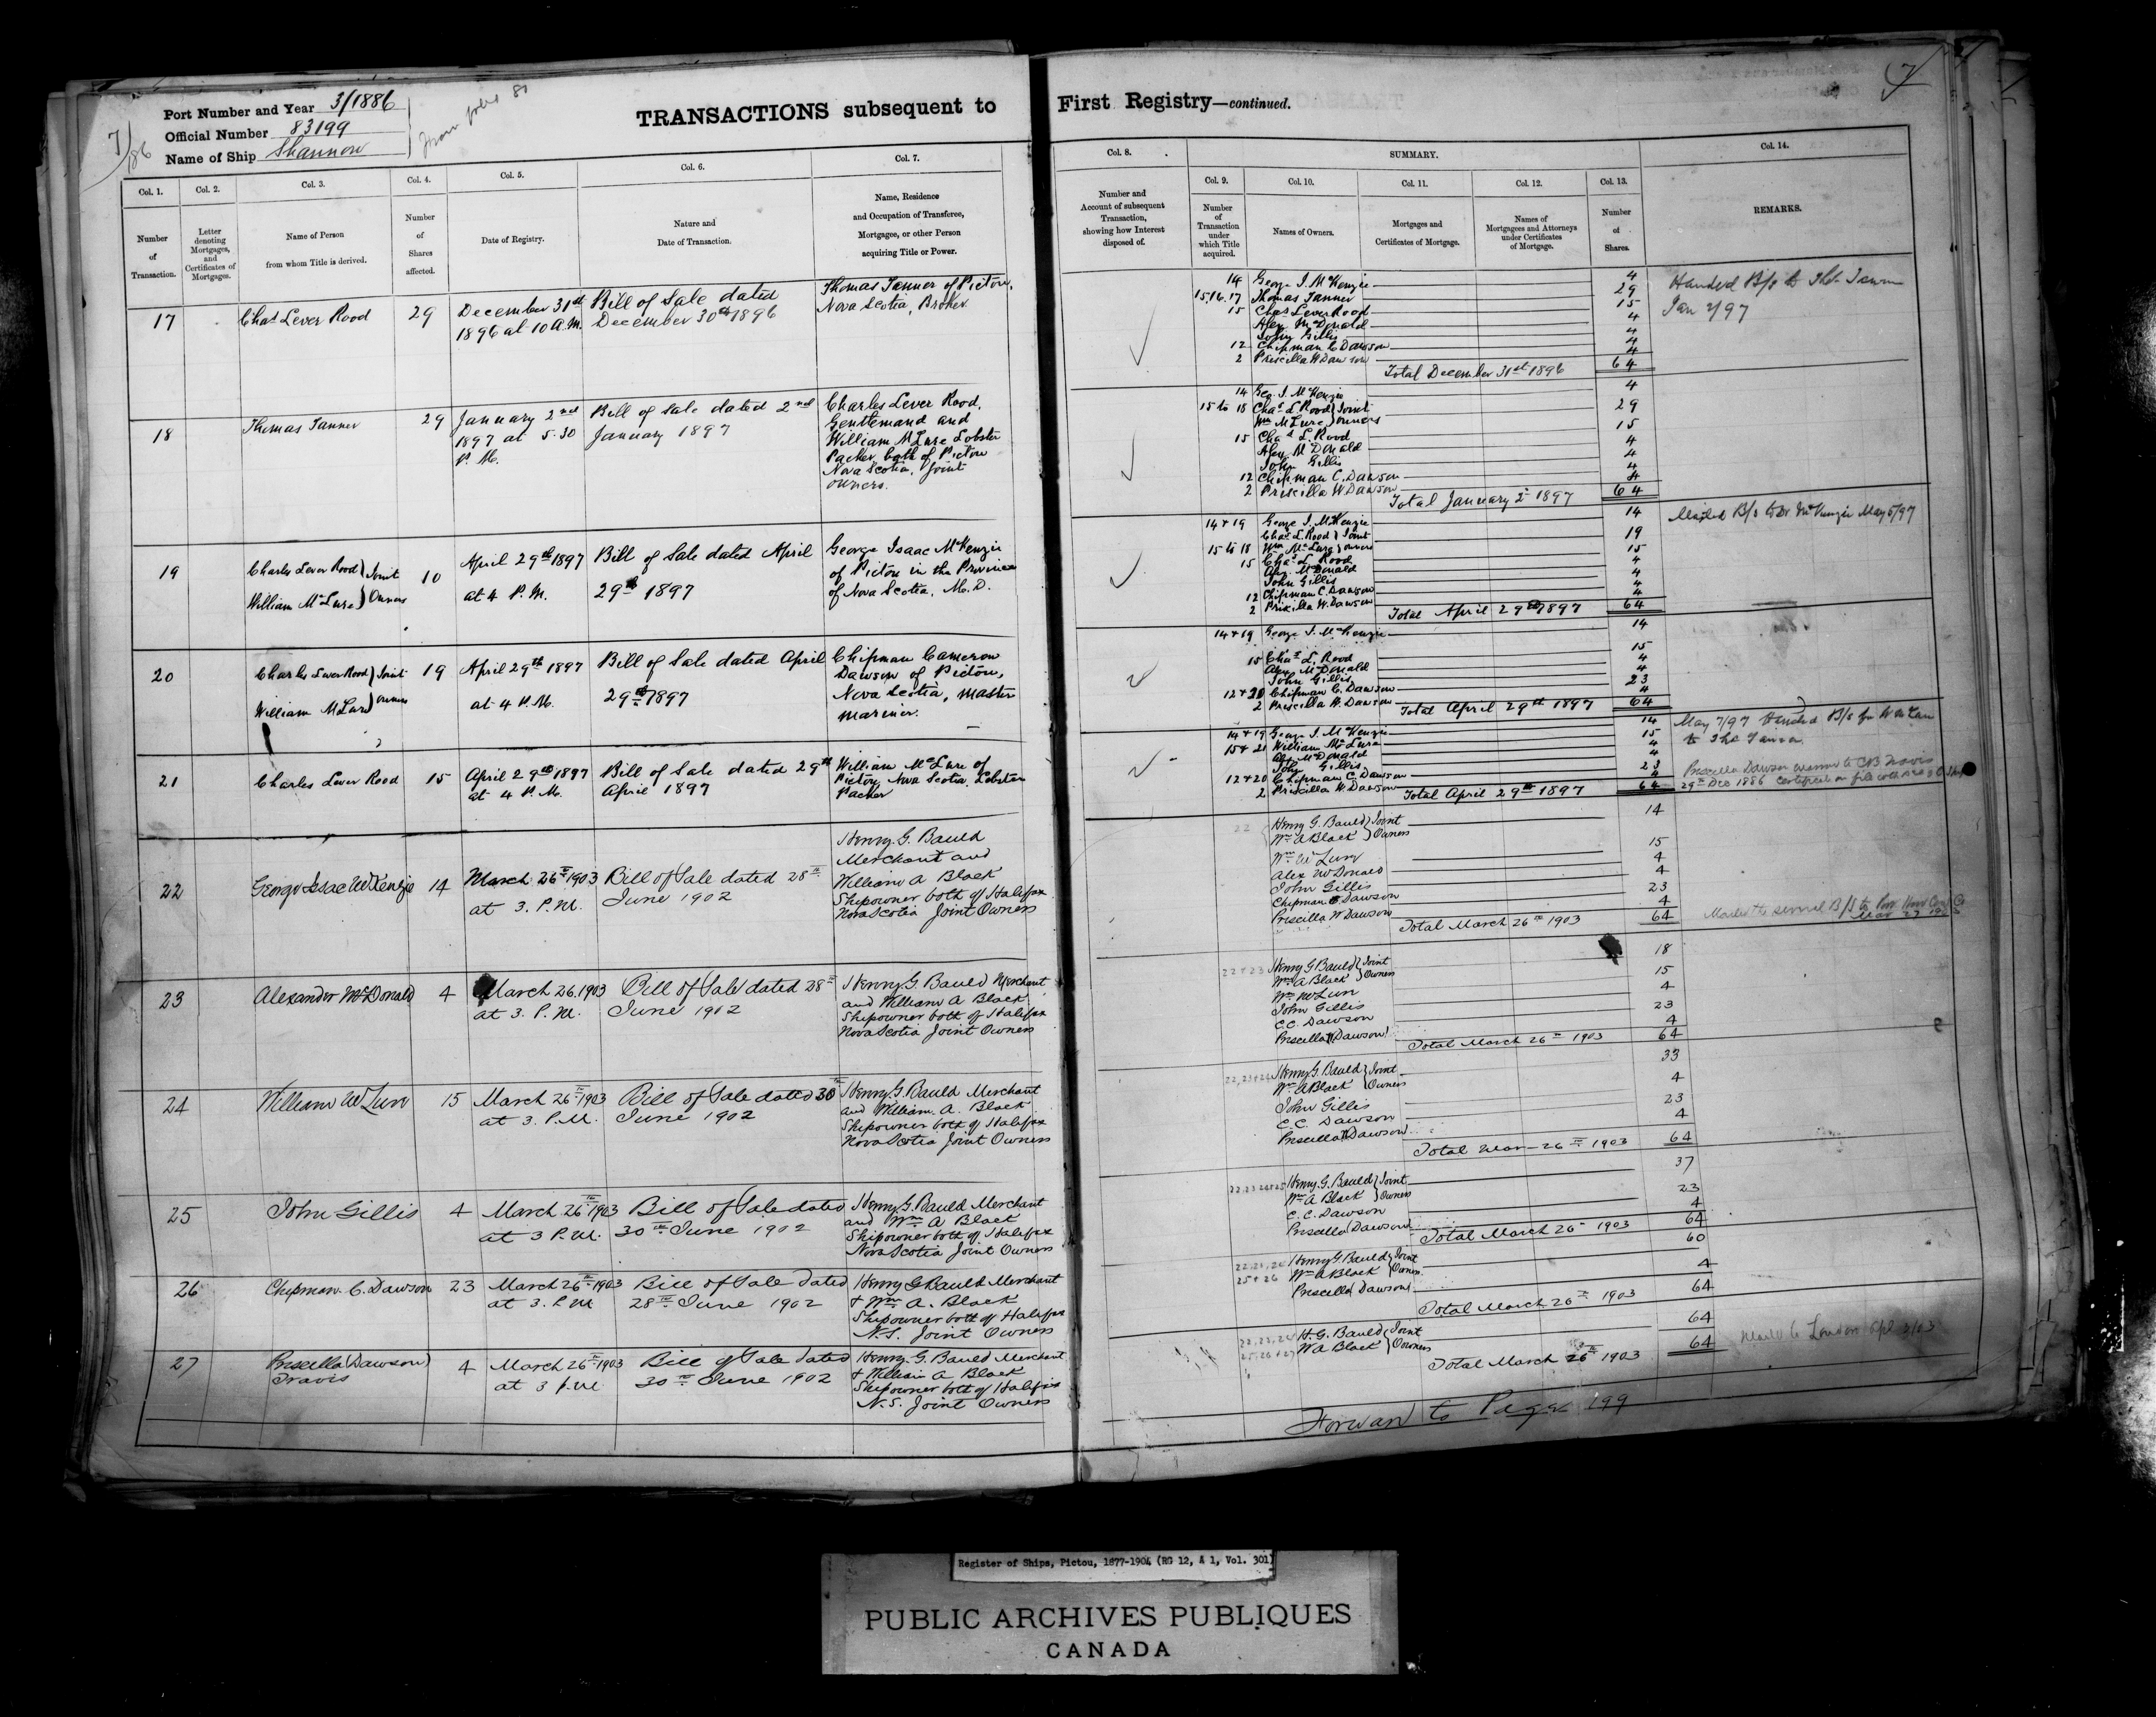 Port Number and Year 3/1886
Official Number 83199
Name of Ship Shannon
7/86
From folio 81
TRANSACTIONS subsequent to
Col. 1. Col. 2. Col. 3. Col. 4. Col. 5. Col. 6. Col. 7.
Number of Transaction.
Letter denoting Mortgages, and Certificates of Mortgages.
Name of Person from whom Title is derived.
Number of Shares affected.
Date of Registry.
Nature and Date of Transaction.
Name, Residence and Occupation of Transferee, Mortgagee, or other Person acquiring Title or Power.
17
Chas Lever Rood
29
December 31st
1896 at 10 A.M.
Bill of Sale dated
December 30th 1896
Thomas Tanner of Pictou,
Nova Scotia, Broker
18
Thomas Tanner
29
January 2nd
1897 at 5.30
P.M.
Bill of Sale dated 2nd
January 1897
Charles Lever Rood,
Gentlemand and
William McLure Lobster
Packer, both of Pictou
Nova Scotia, Joint
owners.
19
Charles Lever Rood } Joint
William McLure } Owners
10
April 29th 1897
at 4 P.M.
Bill of Sale dated April
29th 1897
George Isaac McKenzie
of Pictou in the Province
of Nova Scotia, M.D.
20
Charles Lever Rood } Joint
William McLure } owners
19
April 29th 1897
at 4 P.M.
Bill of Sale dated April
29th 1897
Chipman Cameron
Dawson of Pictou,
Nova Scotia, Master
Mariner.
21
Charles Lever Rood
15
April 29th 1897
at 4 P.M.
Bill of Sale dated 29th
April 1897
William McLure of
Pictou, Nova Scotia, Lobster
Packer
22
George Isaac McKenzie
14
March 26th 1903
at 3. P.M.
Bill of Sale dated 28th
June 1902
Henry. G. Bauld
Merchant and
William A Black
Shipowner both of Halifax
Nova Scotia Joint Owners
23
Alexander McDonald
4
March 26. 1903
at 3. P.M.
Bill of Sale dated 28th
June 1902
Henry G Bauld Merchant
and William A Black
Shipowner both of Halifax
Nova Scotia Joint Owners
24
William McLure
15
March 26th 1903
at 3. P.M.
Bill of Sale dated 30th
June 1902
Henry. G. Bauld Merchant
and William. A. Black
Shipowner both of Halifax
Nova Scotia Joint Owners
25
John Gillis
4
March 26th 1903
at 3 P.M.
Bill of Sale dated
30th June 1902
Henry G. Bauld Merchant
and Wm A Black
Shipowner both of Halifax
Nova Scotia Joint Owners
26
Chipman C. Dawson
23
March 26th 1903
at 3. P.M
Bill of Sale dated
28th June 1902
Henry G Bauld Merchant
+ Wm A. Black
Shipowner both of Halifax
N.S. Joint Owners
27
Priscilla (Dawson)
Travis
4
March 26th 1903
at 3 p.m
Bill of Sale dated
30th June 1902
Henry. G. Bauld Merchant
+ William A Black
Shipowner both of Halifax
N.S. Joint Owners
7
First Registry—continued.
Col. 8. SUMMARY. Col. 14.
Col. 9. Col. 10. Col. 11. Col. 12. Col. 13.
Number and Account of subsequent Transaction, showing how Interest disposed of.
Number of Transaction under which Title acquired.
Names of Owners.
Mortgages and Certificates of Mortgage.
Names of Mortgagees and Attorneys under Certificates of Mortgage.
Number of Shares.
REMARKS.
14 George I. McKenzie 4
15.16.17 Thomas Tanner 29
15 Chas Lever Rood 15
Alex McDonald 4
John Gillis 4
12 Chipman C Dawson 4
2 Priscilla W Dawson 4
Total December 31st 1896 64
Handed B/s to Thos Tanner
Jan 2/97
14 Geo. I. McKenzie 4
15 to 18 Chas L Rood } Joint 29
Wm McLure } owners
15 Chas L. Rood 15
Alex McDonald 4
John Gillis 4
12 Chipman C. Dawson 4
2 Priscilla W Dawson 4
Total January 2nd 1897 64
14 + 19 George I. McKenzie 14
Chas L Rood } Joint 19
15 to 18 Wm McLure } owners
15 Chas L Rood 15
Alex. McDonald 4
John Gillis 4
12 Chipman C. Dawson 4
2 Priscilla W. Dawson 4
Total April 29th 1897 64
Mailed B/s to Dr McKenzie May 5/97
14 + 19 George I. McKenzie 14
15 Chas L. Rood 15
Alex McDonald 4
John Gillis 4
12 + 20 Chipman C. Dawson 23
2 Priscilla W. Dawson 4
Total April 29th 1897 64
14 + 19 George I. McKenzie 14
15 + 21 William McLure 15
Alex McDonald 4
John Gillis 4
12 + 20 Chipman C Dawson 23
2 Priscilla W. Dawson 4
Total April 29th 1897 64
May 7/97 Handed B/s for
to Thos Tanner
Priscilla Dawson married to C B Travis
29th Dec 1886 Certificate on file
22 Henry G. Bauld } Joint 14
Wm A Black } Owners
Wm McLure 15
Alex McDonald 4
John Gillis 4
Chipman C Dawson 23
Priscilla W Dawson 4
Total March 26th 1903 64
Mailed the several B/S to
Mar 27
22 + 23 Henry G Bauld } Joint 18
Wm A Black } Owners
Wm McLure 15
John Gillis 4
C.C. Dawson 23
Priscilla (Dawson) 4
Total March 26th 1903 64
22, 23 + 24 Henry G. Bauld } Joint 33
Wm A Black } Owners
John Gillis 4
C.C. Dawson 23
Priscilla (Dawson) 4
Total Mar 26th 1903 64
22, 23 24 + 25 Henry. G. Bauld } Joint 37
Wm A Black } Owners
C.C. Dawson 23
Priscilla (Dawson) 4
Total March 26th 1903 64
22, 23, 24 Henry G. Bauld } Joint 60
25 + 26 Wm A Black } Owners
Priscilla (Dawson) 4
Total March 26th 1903 64
22, 23, 24 H. G. Bauld } Joint 64
25, 26 + 27 W A Black } Owners
Total March 26th 1903 64
Mailed to London Apl 3/03
Forward to Page 199
Register of Ships, Pictou, 1877-1904 (RG 12, A 1, Vol. 301)
PUBLIC ARCHIVES PUBLIQUES
CANADA